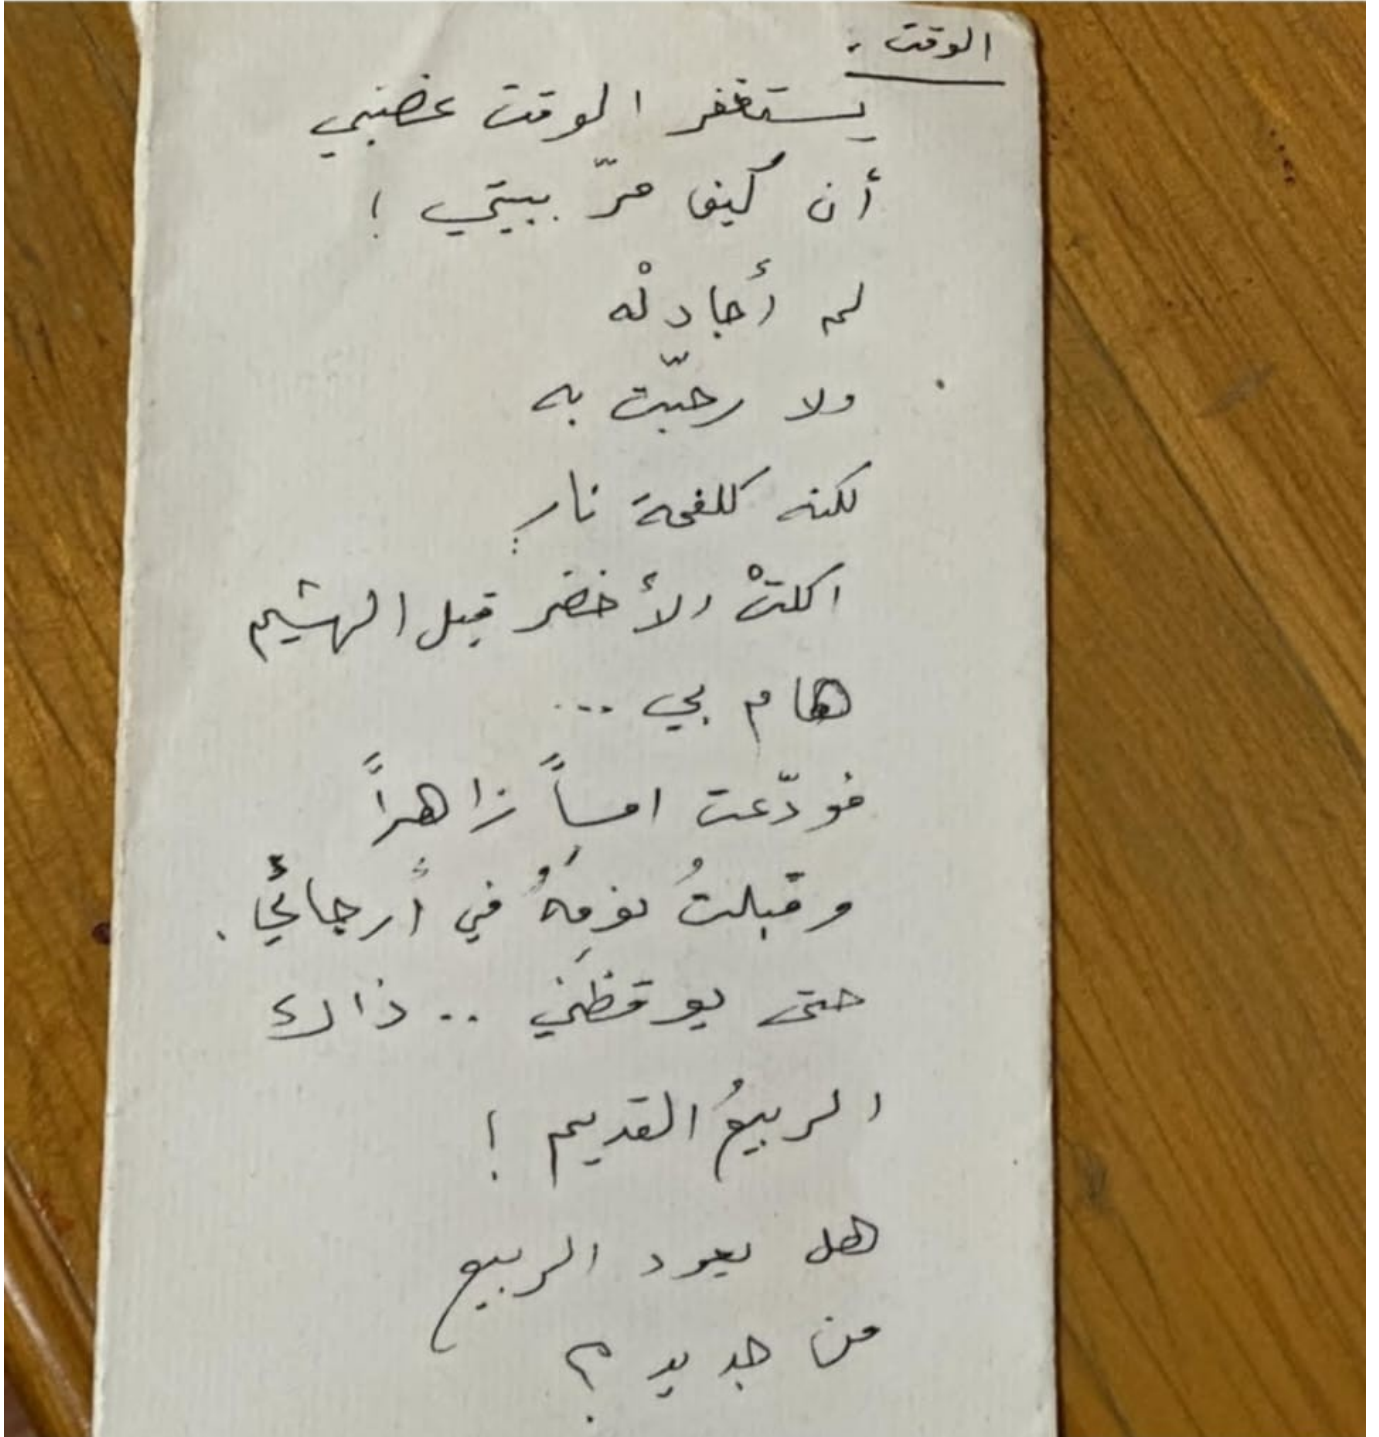 الوقت :
يستغفر الوقت غضبي
أن كيف مرّ ببيتي !
لم أجادلْه
ولا رحبّت به
لكنه كلفحة نارٍ
اكلتْ الأخضر قبل الهشيم
هام بي ...
فودّعت امساً زاهراً
وقبلتُ نومَهُ في أرجائي.
حتى يوقظَني .. ذاك
الربيعُ القديم !
هل يعود الربيع
من جديد ؟